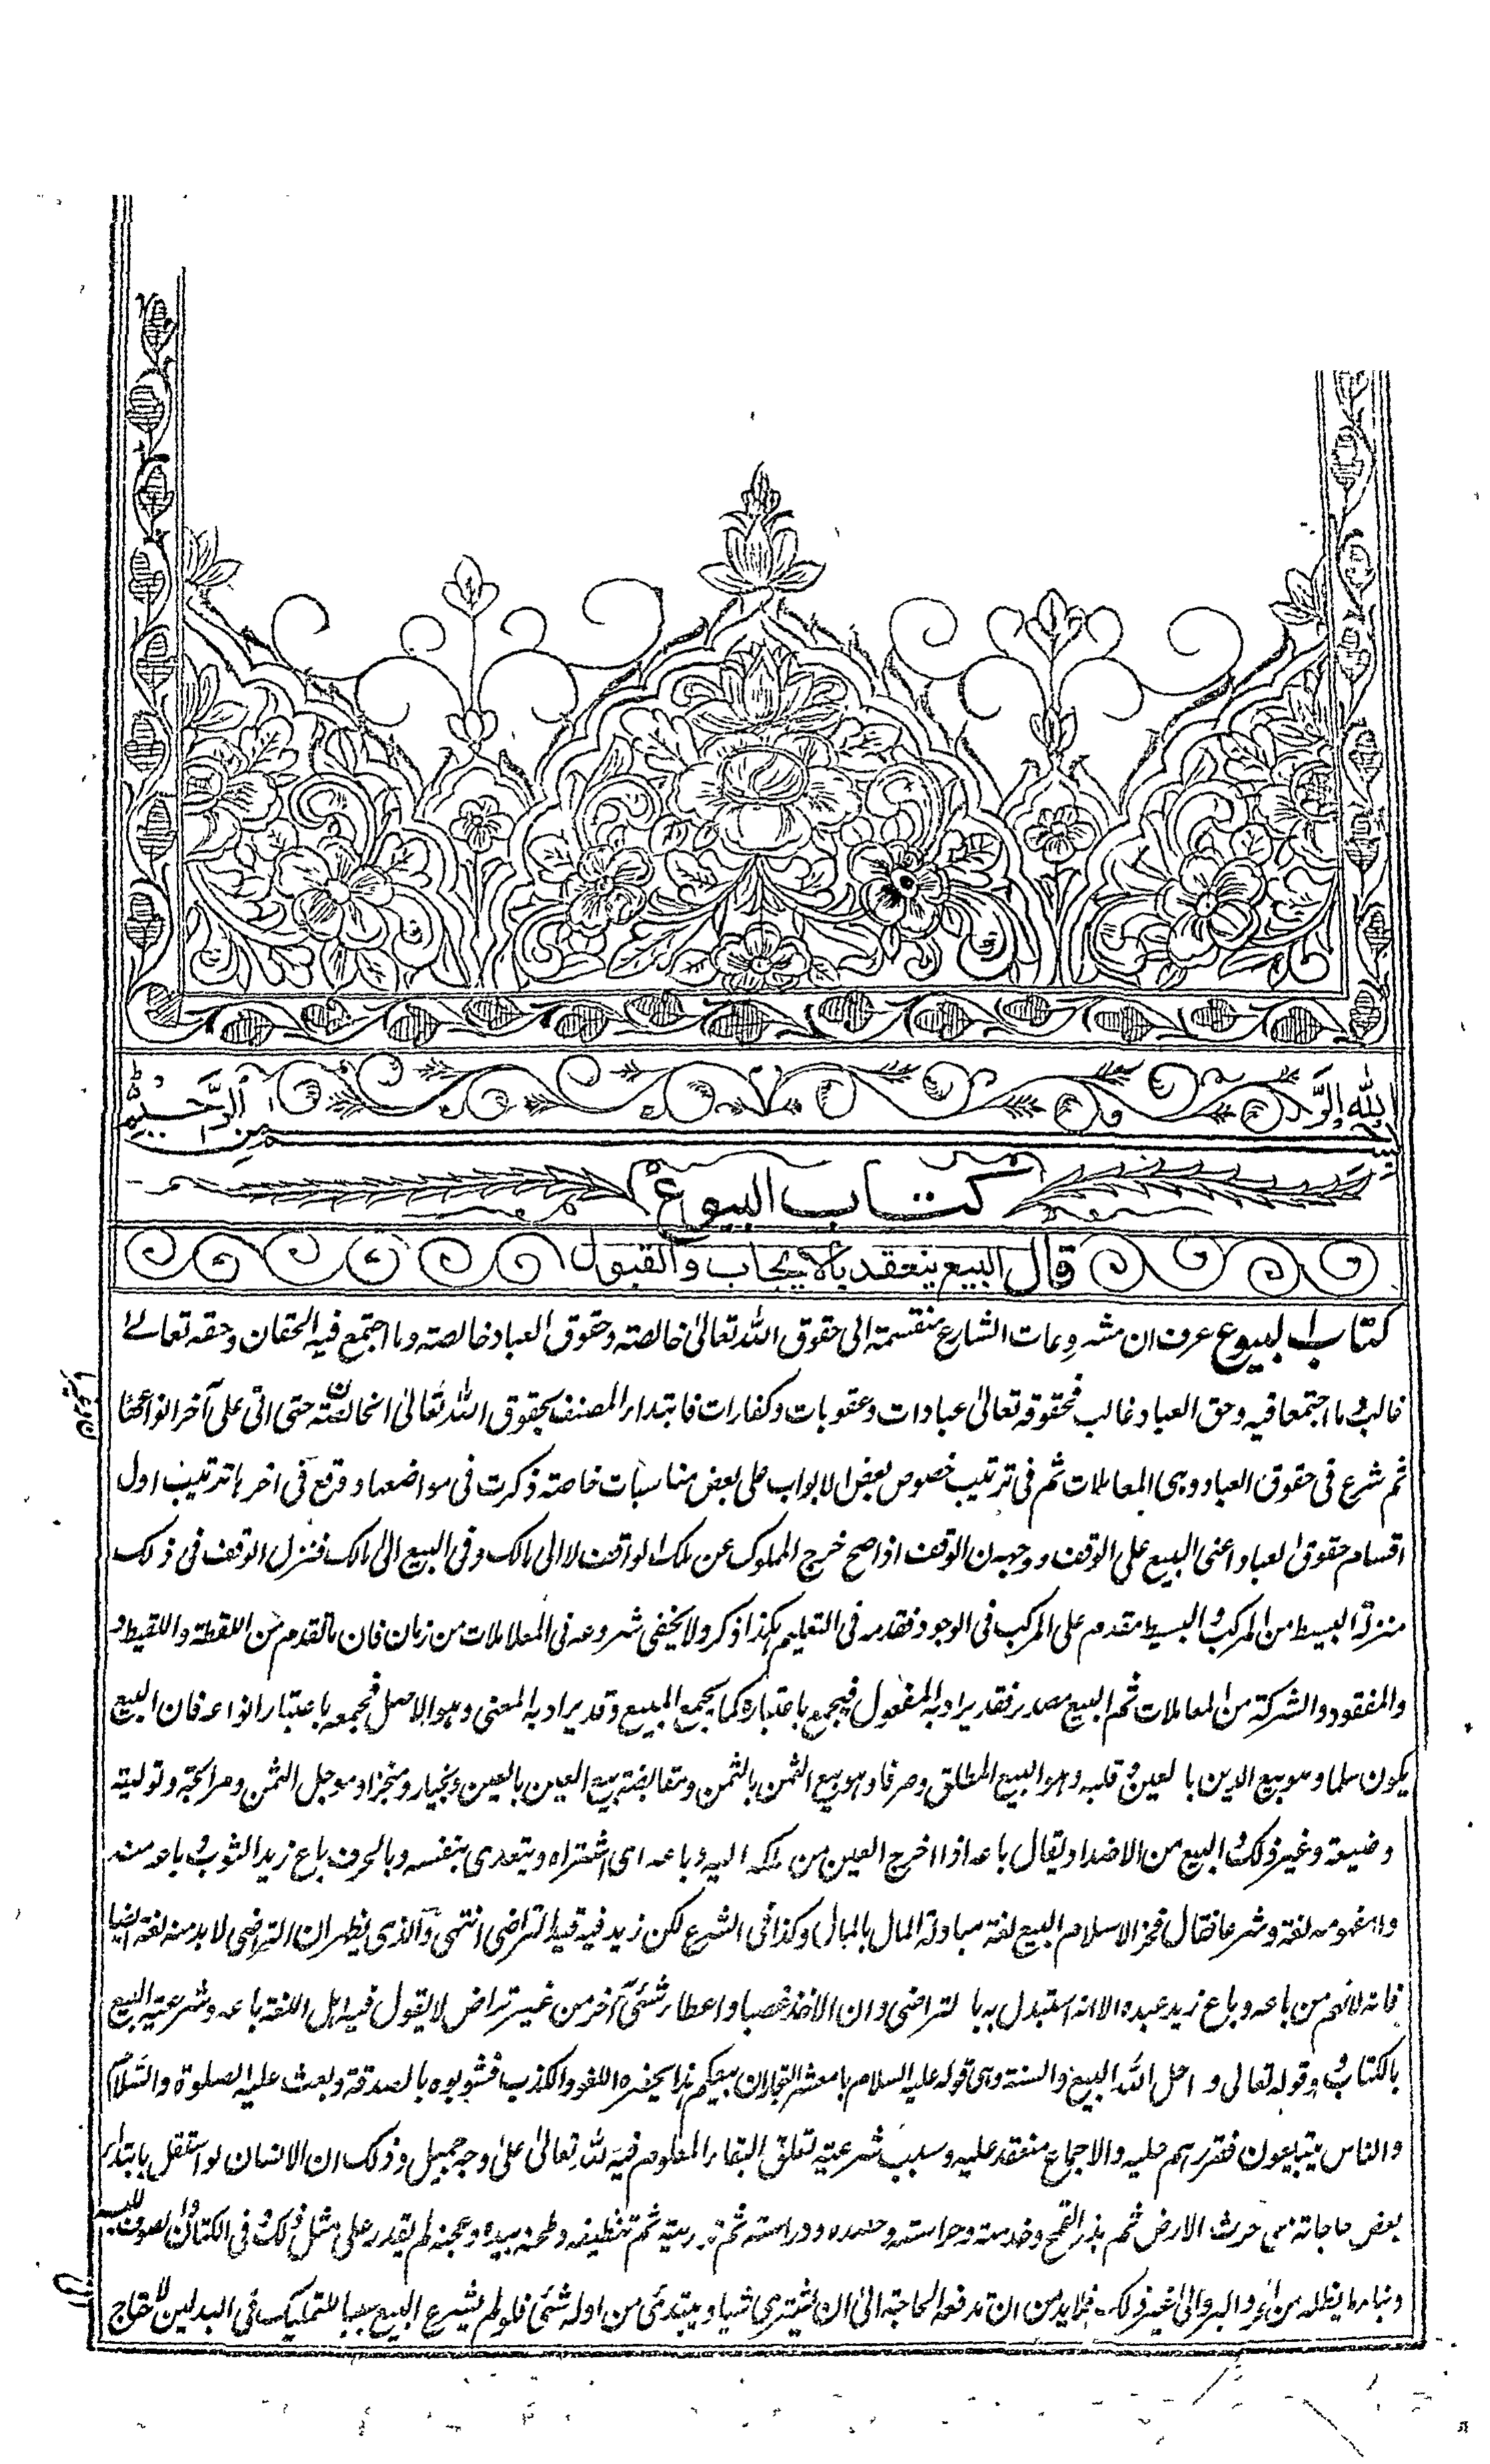 بسم الله الرحمن الرحيم
كتاب البيوع
قال البيع ينعقد بالايجاب والقبول
كتاب البيوع عرف ان مشروعات الشارع منقسمة الى حقوق الله تعالى خالصته وحقوق العباد خالصته وما اجتمع فيه الحقان وحقه تعالى
غالب وما اجتمعا فيه وحق العباد غالب فحقوقه تعالى عبادات وعقوبات وكفارات فابتداء المصنف بحقوق الله تعالى الخالصة حتى اتى على آخر انواعها
ثم شرع فى حقوق العباد وهى المعاملات ثم فى ترتيب خصوص بعض الابواب على بعض مناسبات خاصة ذكرت فى مواضعها ووقع فى آخرها ترتيب اول
اقسام حقوق العباد اعنى البيع على الوقف ووجهه ان الوقف اذا صح خرج المملوك عن ملك الواقف لا الى مالك وفى البيع الى مالك فنزل الوقف فى ذلك
منزلة البسيط من المركب والبسيط مقدم على المركب فى الوجود فقدمه فى التعليم هكذا ذكر ولا يخفى شروعه فى المعاملات من زمان فان ما تقدم من اللقطة واللقيط و
والمفقود والشركة من المعاملات ثم البيع مصدر فقد يراد به المفعول فيجمع باعتباره كما يجمع المبيع وقد يراد به المعنى وهو الاصل فجمعه باعتبار انواعه فان البيع
يكون سلما وهو بيع الدين بالعين وقلبه وهو البيع المطلق وصرفا وهو بيع الثمن بالثمن ومقايضة بيع العين بالعين وبخيار ومنجزا وموجل الثمن ومرابحة وتولية
وضيعة وغير ذلك والبيع من الاضداد يقال باعه اذا اخرج العين من ملكه اليه وباعه اى اشتراه ويتعدى بنفسه وبالحرف باع زيد الثوب وباعه منه
واما مفهومه لغة وشرعا فقال فخر الاسلام البيع لغة مبادلة المال بالمال وكذا فى الشرع لكن زيد فيه قيد التراضى انتهى والذى يظهر ان التراضى لا بد منه لغة ايضا
فانه لا يفهم من باعه وباع زيد عبده الا انه استبدل به بالتراضى وان الاخذ غصبا واعطاء شئ آخر من غير تراض لا يقول فيه اهل اللغة باعه وشرعية البيع
بالكتاب وهو قوله تعالى و احل الله البيع والسنة وهى قوله عليه السلام يا معشر التجار ان بيعكم هذا يحضره اللغو والكذب فشوبوه بالصدقة وبعث عليه الصلوة والسلام
والناس يتبايعون فقررهم عليه والاجماع منعقد عليه وسبب شرعيته تعلق البقاء المعلوم فيه لله تعالى على وجه جميل وذلك ان الانسان لو استقل بابتداء
بعض حاجاته من حرث الارض ثم بذر القمح وخدمته وحراسته وحصده ودراسته ثم تذريته ثم تنظيفه وطحنه بيده وعجنه لم يقدر على مثل ذلك وفى الكتان والصوف للبسه
وبناء ما يظله من الحر والبرد الى غير ذلك فلا بد من ان تدفعه الحاجة الى ان يشترى شيا ويبتدئ من اوله شئ فلو لم يشرع البيع سببا للتمليك فى البدلين لاحتاج